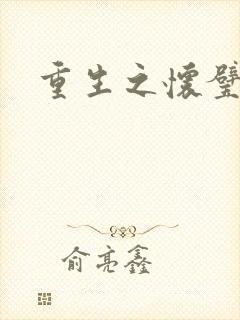 重生之怀璧
俞亮鑫